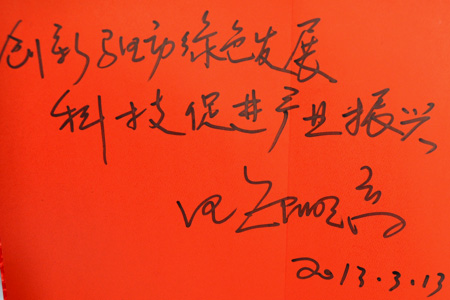 创新驱动绿色发展
科技促进产业振兴
2013.3.13